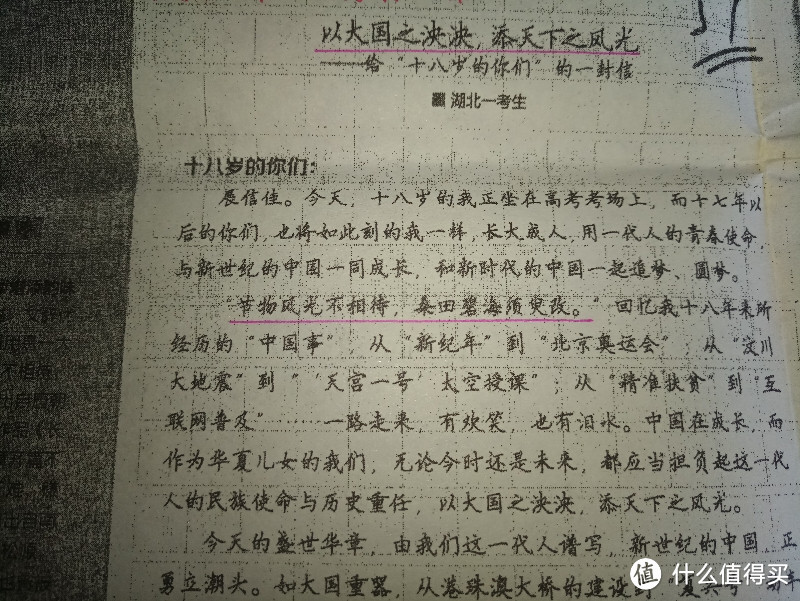 以大国之泱泱，添天下之风光
——给“十八岁的你们”的一封信
湖北一考生
十八岁的你们：
展信佳。今天，十八岁的我正坐在高考考场上，而十七年以
后的你们，也将如此刻的我一样，长大成人，用一代人的青春使命，
与新世纪的中国一同成长，和新时代的中国一起追梦、圆梦。
“节物风光不相待，桑田碧海须臾改。”回忆我十八年来所
经历的“中国事”，从“新纪年”到“北京奥运会”；从“汶川
大地震”到“‘天宫一号’太空授课”；从“精准扶贫”到“互
联网普及”……一路走来，有欢笑，也有泪水。中国在成长，而
作为华夏儿女的我们，无论今时还是未来，都应当担负起这一代
人的民族使命与历史重任，以大国之泱泱，添天下之风光。
今天的盛世华章，由我们这一代人谱写，新世纪的中国 正
勇立潮头。如大国重器，从港珠澳大桥的建设到
值 什么值得买